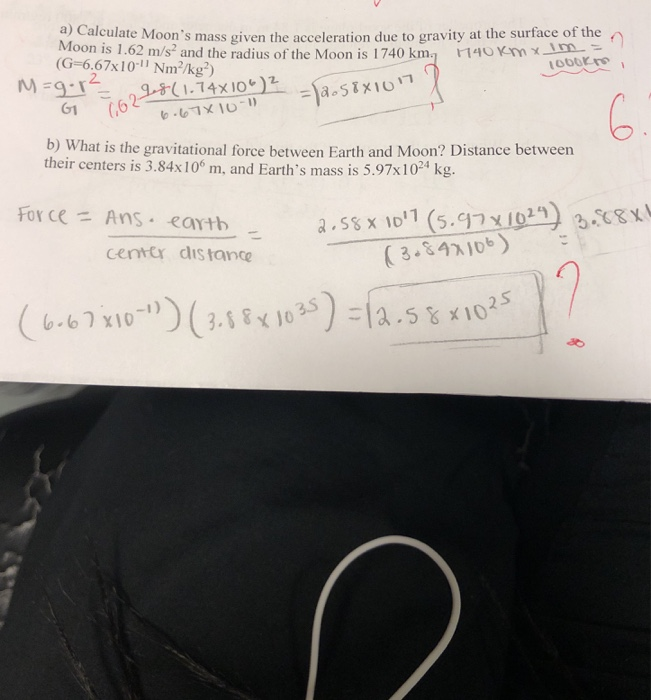 a) Calculate Moon's mass given the acceleration due to gravity at the surface of the
Moon is 1.62 m/s² and the radius of the Moon is 1740 km. 1740 Km x 1m / 1000Km = ?
(G=6.67x10⁻¹¹ Nm²/kg²)
M = g·r² / G = 1,62 9.8(1.74x10⁶)² / 6.67x10⁻¹¹ = 2.58x10¹⁷ ?
6.
b) What is the gravitational force between Earth and Moon? Distance between
their centers is 3.84x10⁶ m, and Earth's mass is 5.97x10²⁴ kg.
Force = Ans. earth / center distance = 2.58 x 10¹⁷ (5.97 x 10²⁴) / (3.84x10⁶) = 3.88x1
(6.67x10⁻¹¹)(3.88x10³⁵) = 2.58x10²⁵ ?